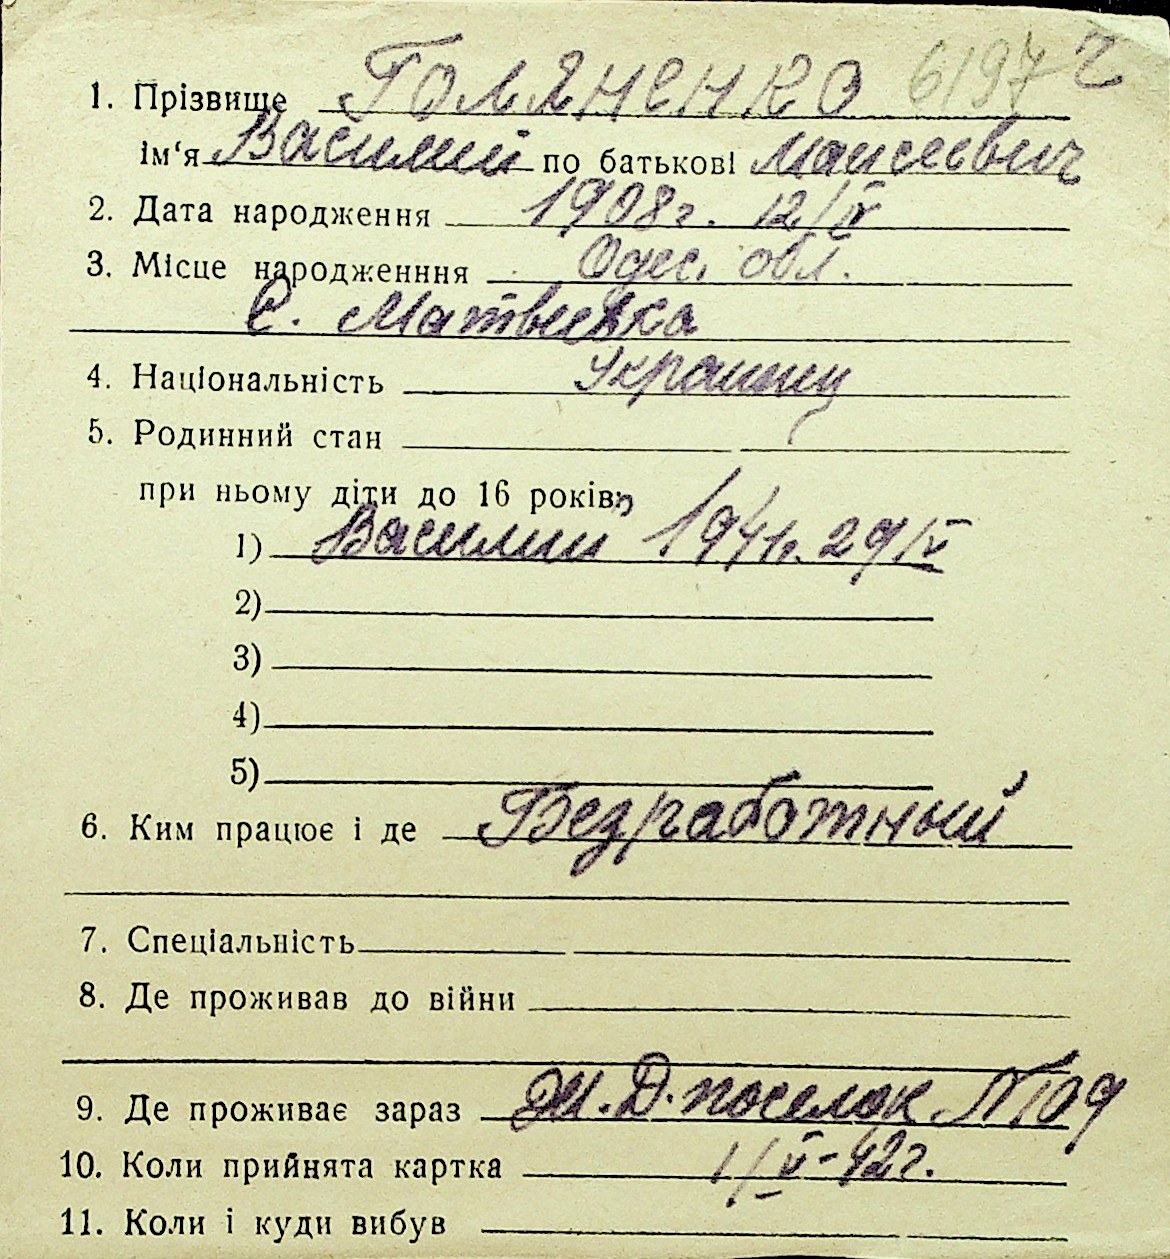 6197 г
1. Прізвище Голяненко
ім'я Василий по батькові Маисеевич
2. Дата народження 1908г. 12/IV
3. Місце народженння Одес. обл.
с. Матвеевка
4. Національність Украинец
5. Родинний стан
при ньому діти до 16 років:
1) Василий 1941г. 29/IV
2)
3)
4)
5)
6. Ким працює і де Безработный
7. Спеціальність
8. Де проживав до війни
9. Де проживає зараз Ж.Д. поселок №109
10. Коли прийнята картка 1/V-42г.
11. Коли і куди вибув